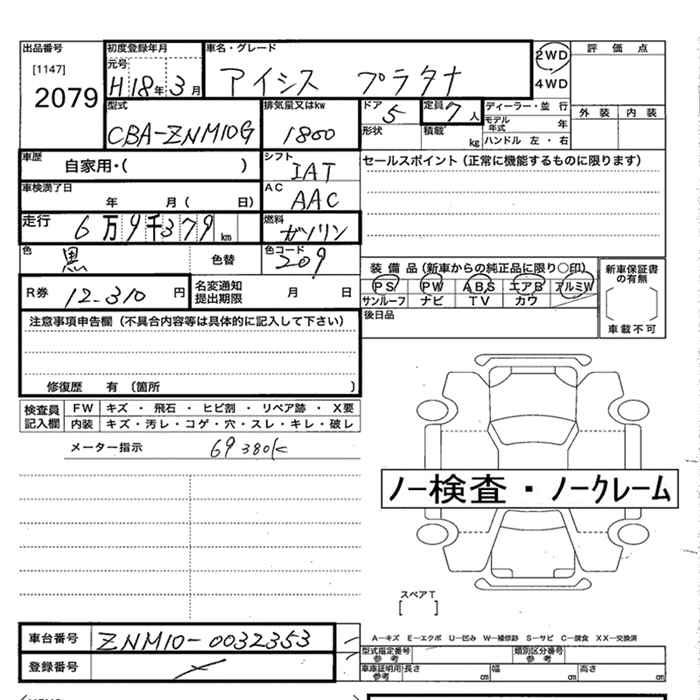 出品番号
[1147]
2079
初度登録年月
元号
H18年3月
車名・グレード
アイシス プラタナ
2WD
4WD
評価点
外装 内装
型式
CBA-ZNM10G
排気量又はkw
1800
ドア
5
形状
定員
7人
積載
kg
ディーラー・並行
モデル年式 年
ハンドル 左・右
車歴
自家用・( )
シフト
IAT
セールスポイント(正常に機能するものに限ります)
車検満了日
年 月( 日)
AC
AAC
走行
6万9千379km
燃料
ガソリン
色
黒
色替
色コード
209
R券
12-310円
名変通知
提出期限
月 日
装備品(新車からの純正品に限り○印)
PS PW ABS エアB アルミW
サンルーフ ナビ TV カワ
後日品
新車保証書
の有無
車載不可
注意事項申告欄(不具合内容等は具体的に記入して下さい)
修復歴 有(箇所 )
検査員
記入欄
FW キズ・飛石・ヒビ割・リペア跡・X要
内装 キズ・汚レ・コゲ・穴・スレ・キレ・破レ
メーター指示
69380K
ノー検査・ノークレーム
スペアT
[ ]
車台番号
ZNM10-0032353
登録番号
A-キズ E-エクボ U-凹み W-補修跡 S-サビ C-腐食 XX-交換済
型式指定番号
参考
類別区分番号
参考
車庫証明用
参考
長さ cm 幅 cm 高さ cm